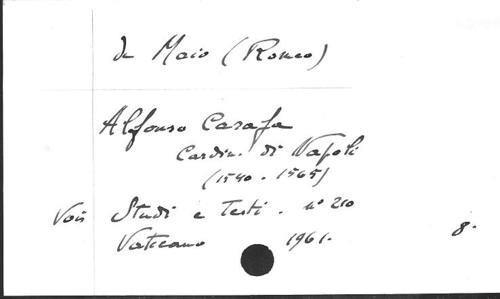 de Maio (Romeo)
Alfonso Carafa
Cardin. di Napoli
(1540 - 1565)
Vois Studi e Testi. n° 210
Vaticano 1961.
8.